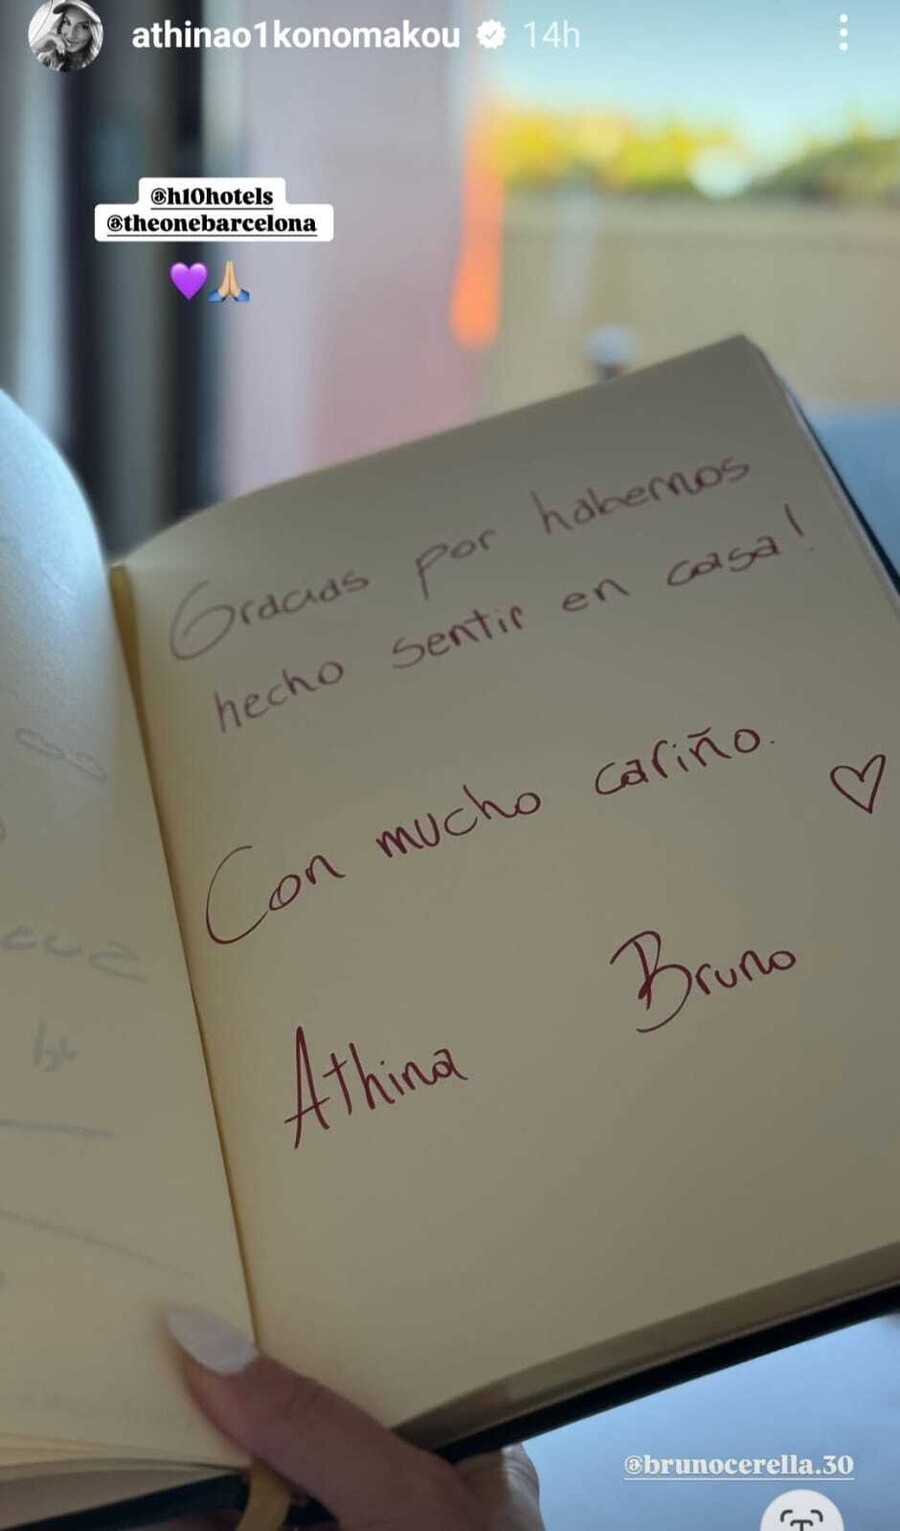 athinao1konomakou 14h
@h10hotels
@theonebarcelona
Gracias por habernos
hecho sentir en casa!
Con mucho cariño.
Bruno
Athina
@brunocerella.30